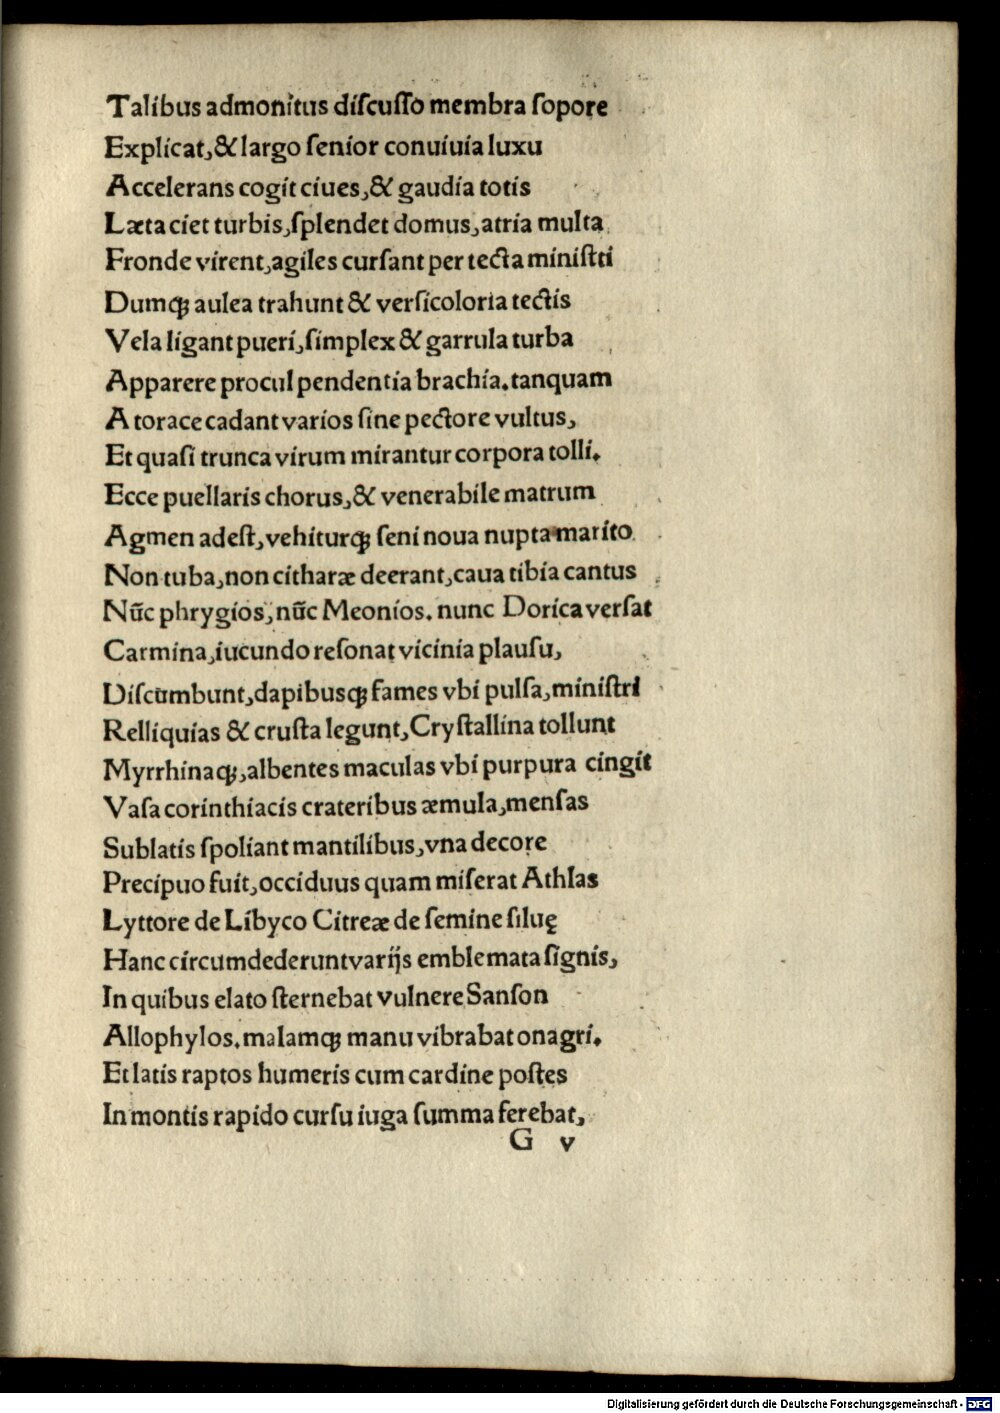 Talibus admonitus diſcuſſo membra ſopore
Explicat,& largo ſenior conuiuia luxu
Accelerans cogit ciues,& gaudia totis
Læta ciet turbis,ſplendet domus,atria multa
Fronde virent,agiles curſant per tecta miniſtri
Dumqꝫ aulea trahunt & verſicoloria tectis
Vela ligant pueri,ſimplex & garrula turba
Apparere procul pendentia brachia.tanquam
A torace cadant varios ſine pectore vultus,
Et quaſi trunca virum mirantur corpora tolli.
Ecce puellaris chorus,& venerabile matrum
Agmen adeſt,vehiturqꝫ ſeni noua nupta marito
Non tuba,non citharæ deerant,caua tibia cantus
Nūc phrygios,nūc Meonios. nunc Dorica verſat
Carmina,iucundo reſonat vicinia plauſu,
Diſcumbunt,dapibusqꝫ fames vbi pulſa,miniſtri
Relliquias & cruſta legunt,Cryſtallina tollunt
Myrrhinaqꝫ,albentes maculas vbi purpura cingit
Vaſa corinthiacis crateribus æmula,menſas
Sublatis ſpoliant mantilibus,vna decore
Precipuo fuit,occiduus quam miſerat Athlas
Lyttore de Libyco Citreæ de ſemine ſiluę
Hanc circumdederunt varijs emblemata ſignis,
In quibus elato ſternebat vulnere Sanſon
Allophylos.malamqꝫ manu vibrabat onagri.
Et latis raptos humeris cum cardine poſtes
In montis rapido curſu iuga ſumma ferebat,
G v
Digitalisierung gefördert durch die Deutsche Forschungsgemeinschaft - DFG